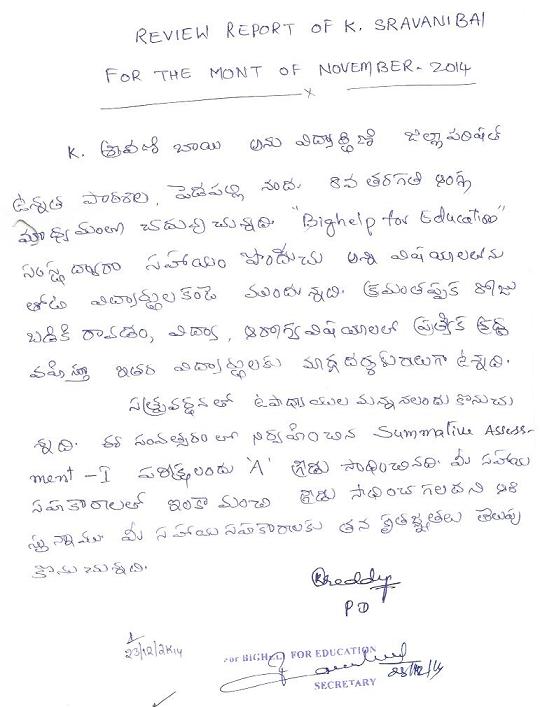 REVIEW REPORT OF K. SRAVANIBAI
FOR THE MONT OF NOVEMBER-2014
X
K. శ్రావణి బాయి అను విద్యార్థిణి జిల్లా పరిషత్
ఉన్నత పాఠశాల, పెదపల్లి నందు 8వ తరగతి ఆంగ్ల
మాధ్యమంలో చదువుచున్నది. "Bighelp for Education"
సంస్థ ద్వారా సహాయం పొందుచు అన్ని విషయాలలను
తోటి విద్యార్థులకంటె ముందున్నది. క్రమంతప్పక రోజు
బడికి రావడం, విద్యా, ఆరోగ్య విషయాలలో ప్రత్యేక శ్రద్ధ
వహిస్తూ ఇతర విద్యార్థులకు మార్గదర్శకురాలుగా ఉన్నది.
సత్ప్రవర్తనతో ఉపాధ్యాయుల మన్ననలందు కొనుచు
న్నది. ఈ సంవత్సరంలో నిర్వహించిన Summative Assess-
ment -I పరీక్షలందు 'A' గ్రేడు సాధించినది. మీ సహాయ
సహకారాలతో ఇంకా మంచి గ్రేడు సాధించగలదని ఆశి
స్తున్నాము మీ సహాయ సహకారాలకు తన కృతజ్ఞతలు తెలుపు
కొనుచున్నది.
Breddy
PD
23/12/2K14
For BIGHELP FOR EDUCATION
23/12/14
SECRETARY